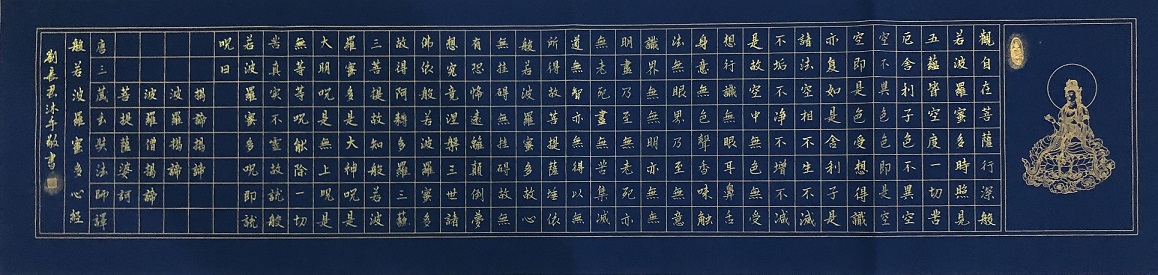 觀自在菩薩行深般
若波羅蜜多時照見
五蘊皆空度一切苦
厄舍利子色不異空
空不異色色即是空
空即是色受想行識
亦復如是舍利子是
諸法空相不生不滅
不垢不淨不增不減
是故空中無色無受
想行識無眼耳鼻舌
身意無色聲香味觸
法無眼界乃至無意
識界無無明亦無無
明盡乃至無老死亦
無老死盡無苦集滅
道無智亦無得以無
所得故菩提薩埵依
般若波羅蜜多故心
無挂礙無挂礙故無
有恐怖遠離顛倒夢
想究竟涅槃三世諸
佛依般若波羅蜜多
故得阿耨多羅三藐
三菩提故知般若波
羅蜜多是大神咒是
大明咒是無上咒是
無等等咒能除一切
苦真實不虛故說般
若波羅蜜多咒即說
咒曰
揭諦揭諦
波羅揭諦
波羅僧揭諦
菩提薩婆訶
唐三藏玄奘法師譯
般若波羅蜜多心經
沐手敬書